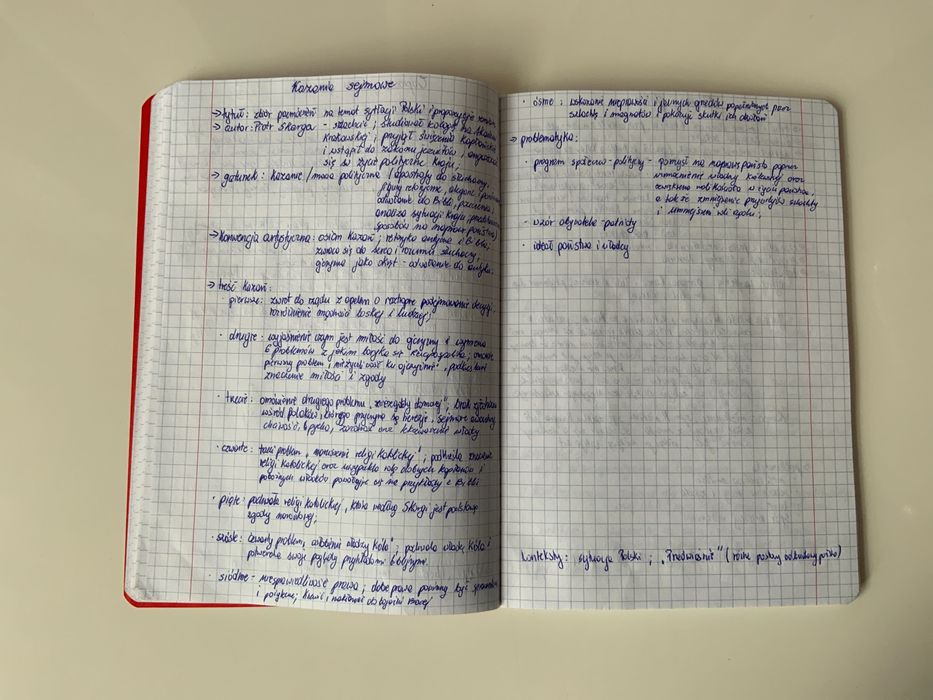 Kazania sejmowe
→ tytuł: zbiór przemówień na temat sytuacji Polski i propozycje zmian
→ autor: Piotr Skarga - szlachcic; studiował kolegę na Akademii
Krakowskiej i przyjął święcenia kapłańskie
i wstąpił do zakonu jezuitów, angażował
się w życie polityczne kraju;
→ gatunek: kazanie / mowa polityczna (apostrofy do słuchaczy,
figury retoryczne, alegorie i
odwołanie do Biblii, pouczenia i
analiza sytuacji kraju, przedstawienie
sposobów na naprawę państwa)
→ Konwencja artystyczna: osiem kazań; retoryka antyczna i Biblii,
zwraca się do serca i rozumu słuchaczy,
ojczyzna jako okręt - odwołanie do antyku;
→ treść kazań:
· pierwsze: zwrot do rządu z apelem o roztropne podejmowanie decyzji;
rozróżnienie mądrości boskiej i ludzkiej;
· drugie: wyjaśnienie czym jest miłość do ojczyzny i wymienia
6 problemów z jakimi boryka się Rzeczpospolita; omawia
pierwszy problem „nieżyczliwość ku ojczyźnie", podkreślenie
znaczenie miłości i zgody
· trzecie: omówienie drugiego problemu „niezgody domowej"; brak zgody
wśród Polaków, którego przyczyną są herezje, sejmowe
chciwość, pycha, zazdrość oraz lekceważenie władzy
· czwarte: trzeci problem „naruszenie religii katolickiej"; podkreśla znaczenie
religii katolickiej oraz wszystkie role dobrych kapłanów i
pobożnych władców powołuje się na przykłady z Biblii
· piąte: podwaliła religii katolickiej, która według Skargi jest podstawą
zgody narodowej;
· szóste: czwarty problem, „osłabienie władzy króla"; pochwała władzy króla i
potwierdza swoje poglądy przykładami biblijnymi.
· siódme: niesprawiedliwość prawa; dobre prawo powinny być sprawiedliwe
i pożyteczne; karać i nakłaniać do bojaźni Bożej
· ósme: wskazanie niesprawności i jawnych grzechów popełnionych przez
szlachtę i magnatów i pokazuje skutki ich działań
→ problematyka:
· program społeczno-polityczny - pomysł na naprawę państwa poprzez
wzmocnienie władzy królewskiej oraz
katolików w życiu państwa,
a także zmniejszenie przywilejów szlachty
i zmniejszenie roli sejmu;
· wzór obywatela-patrioty
· ideał państwa i władcy
konteksty: sytuacja Polski; „Przedwiośnie" (różne postawy odbudowy państwa)